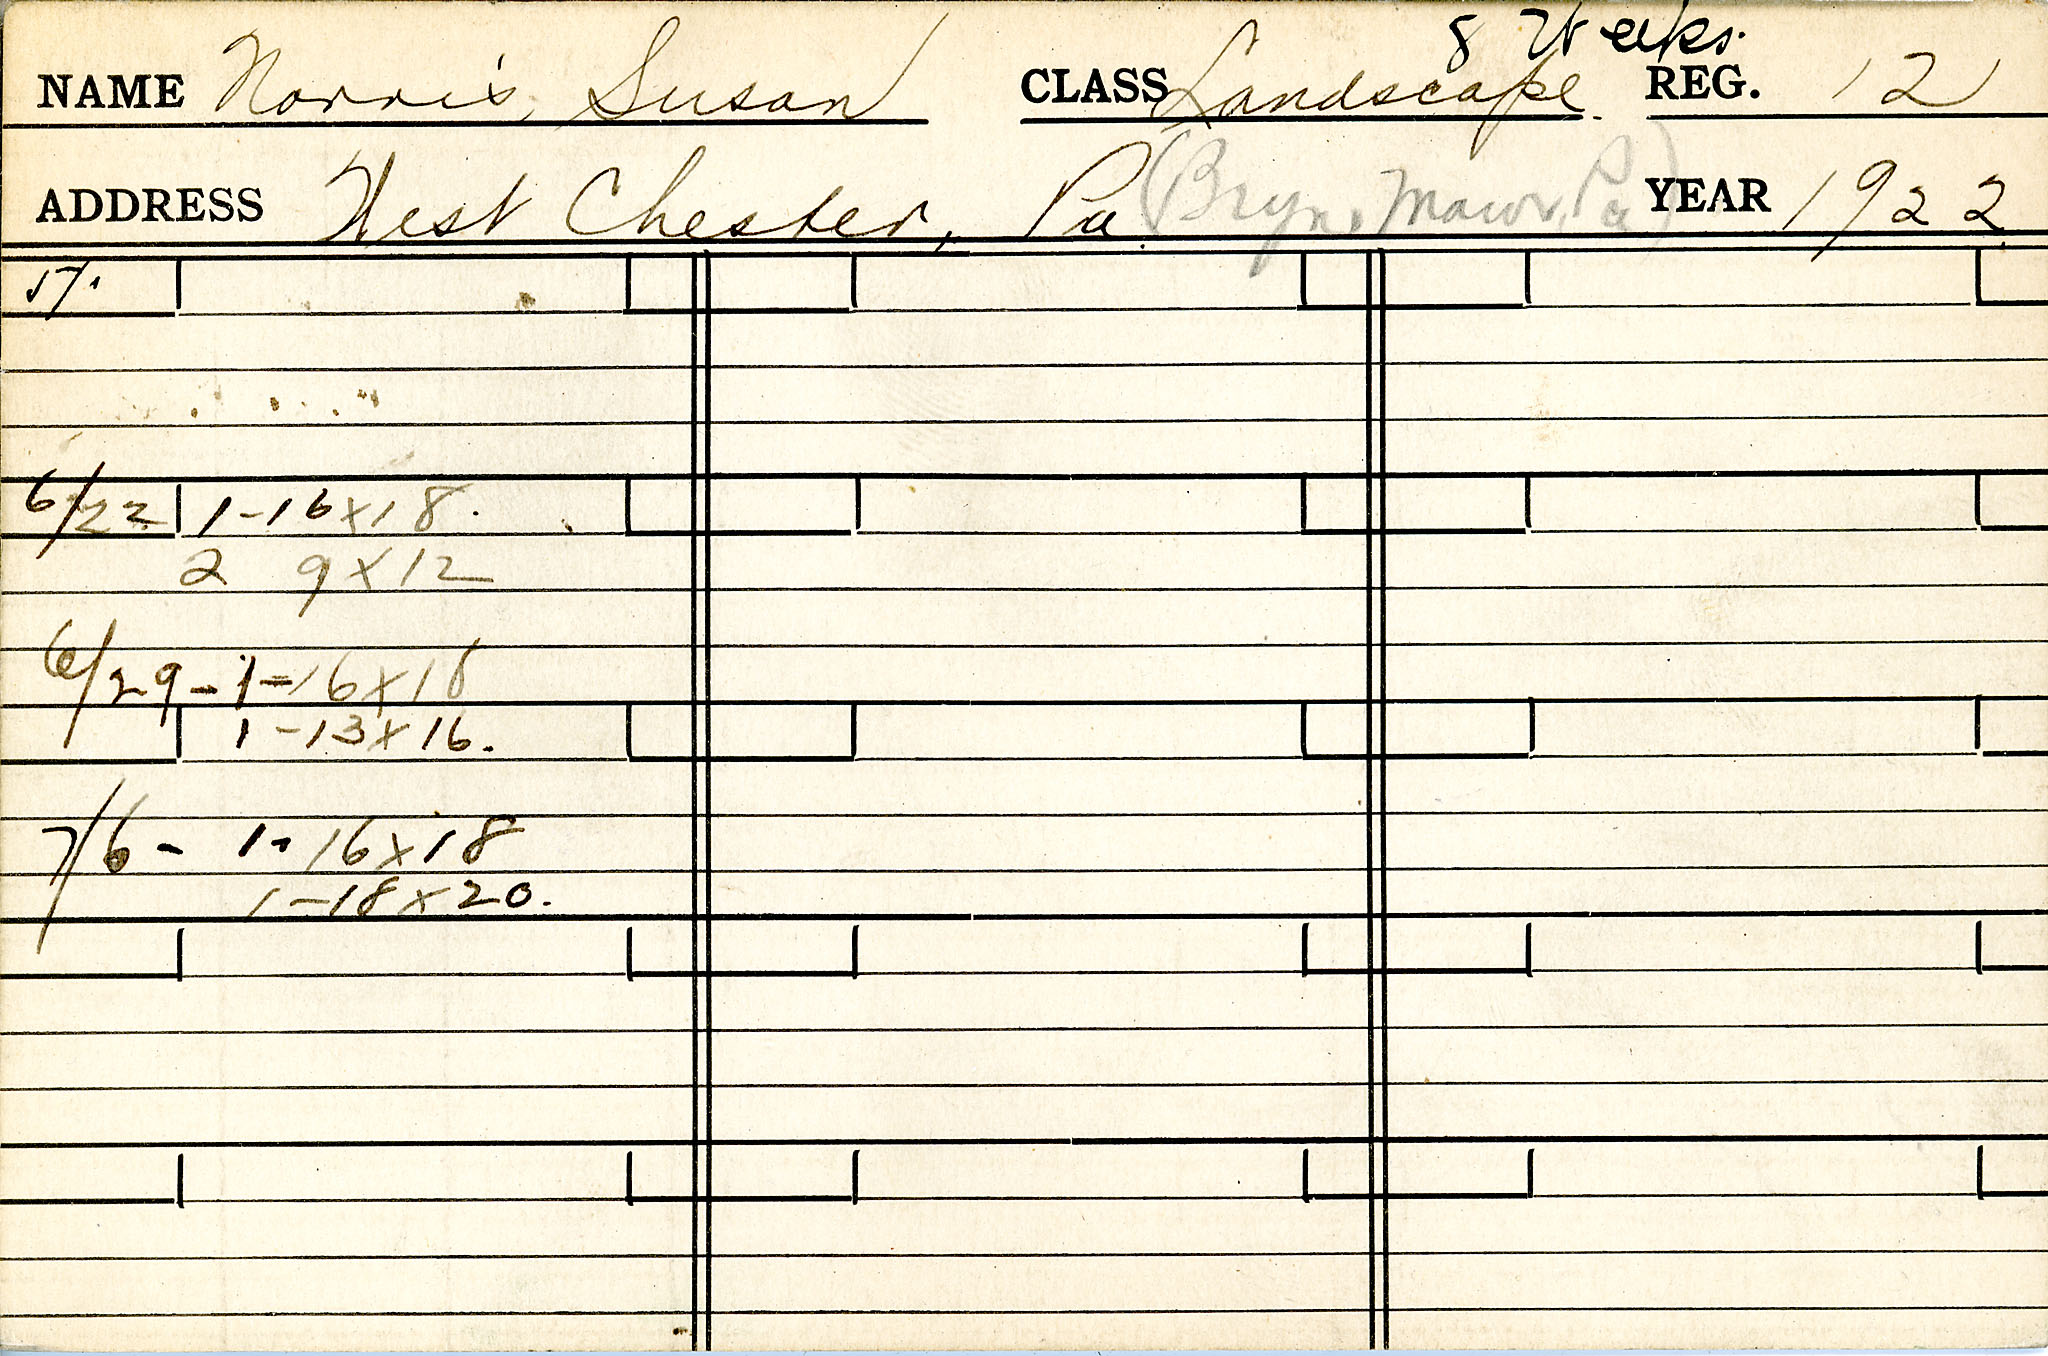 8 Weeks.
NAME Norris, Susan CLASS Landscape. REG. 12
ADDRESS West Chester, Pa. (Bryn Mawr, Pa) YEAR 1922
6/22 1-16x18.
2 9x12
6/29-1-16x18
1-13x16.
7/6- 1-16x18
1-18x20.